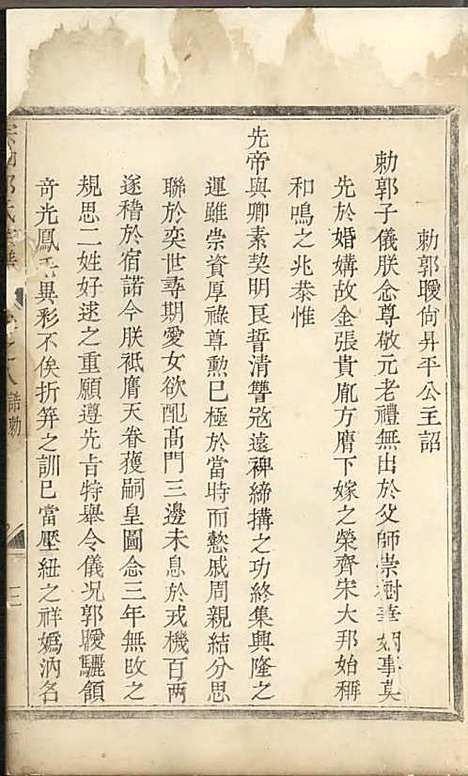 勅郭曖尙昇平公主詔
勅郭子儀朕念尊敬元老禮無出於父師崇樹華姻事莫
先於婚媾故金張貴胤方膺下嫁之榮齊宋大邦始稱
和鳴之兆恭惟
先帝與卿素契明良誓清讐寇遠裨締搆之功終集興隆之
運雖崇資厚祿尊勲巳極於當時而懿戚周親結分思
聯於奕世尋期愛女欲配髙門三邊未息於戎機百兩
遂稽於宿諾今朕祗膺天眷獲嗣皇圖念三年無改之
規思二姓好逑之重願遵先㫖特舉令儀况郭曖驪頷
奇光鳳異彩不俟折笄之訓巳當壓紐之祥嬀汭名
氏 之八 誥勅 三